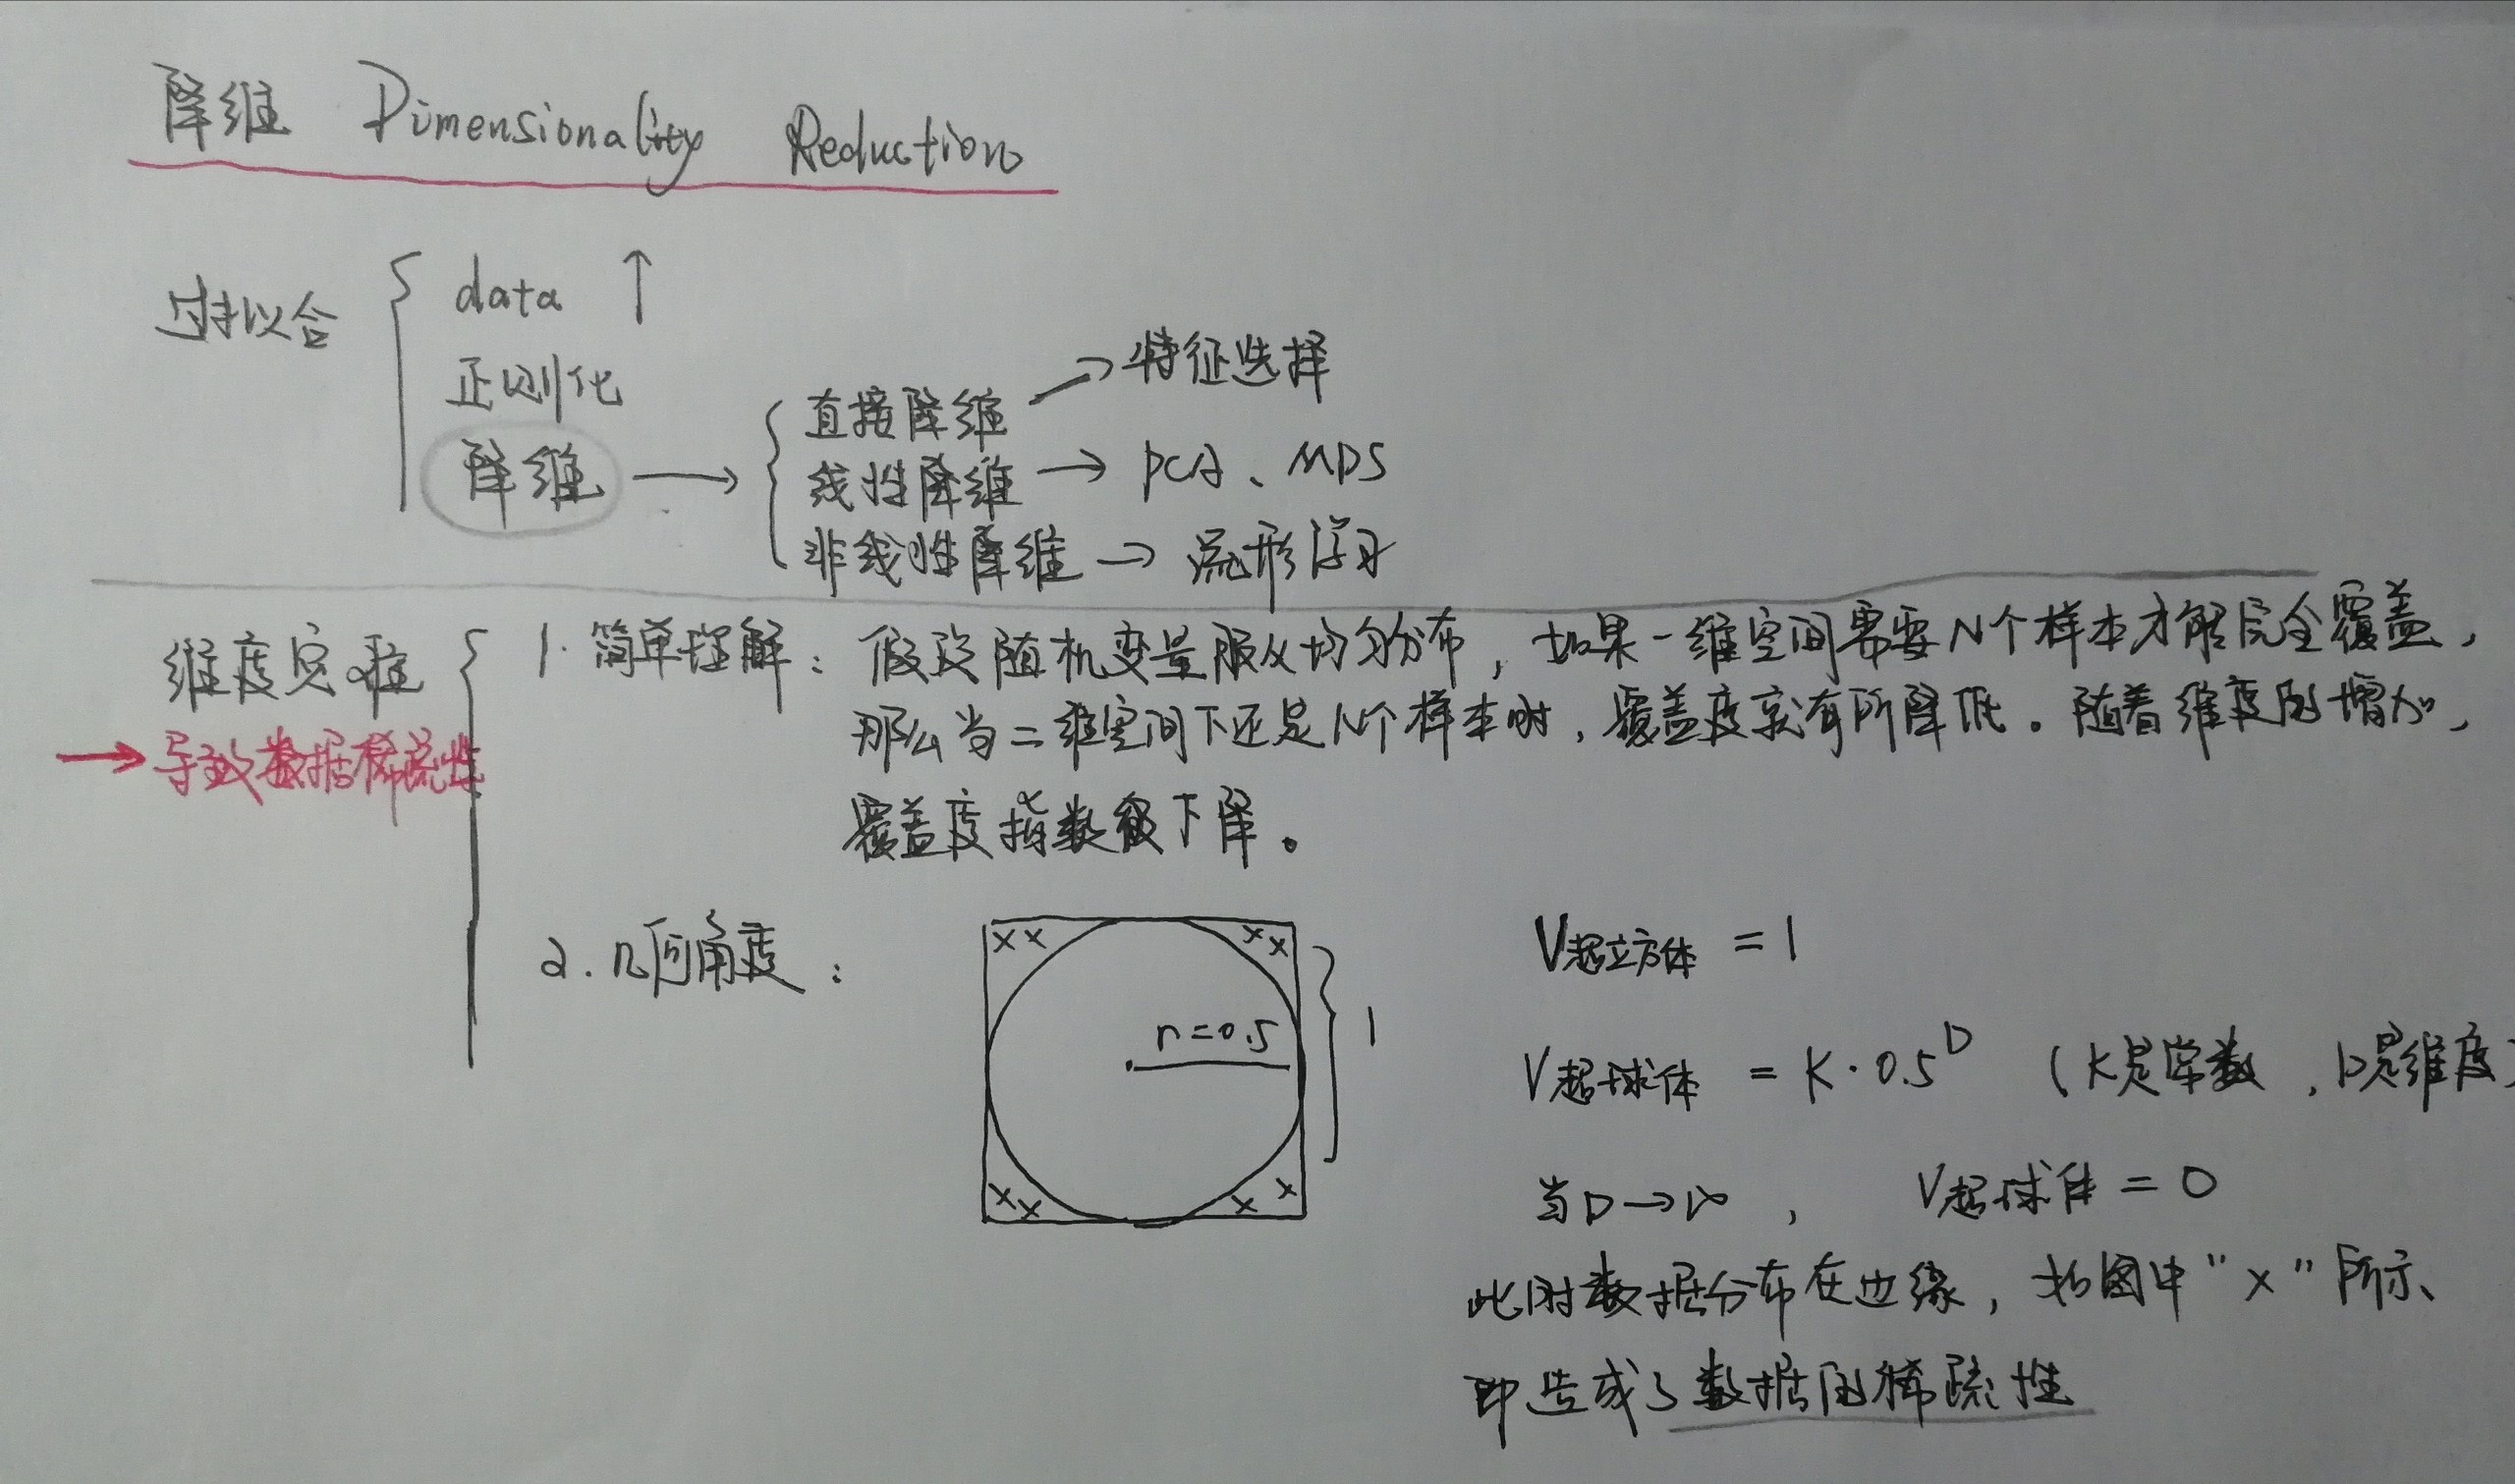 降维 Dimensionality Reduction
过拟合
data ↑
正则化
降维 →
直接降维 → 特征选择
线性降维 → PCA、MDS
非线性降维 → 流形学习
维度灾难
→ 导致数据稀疏性
1. 简单理解：假设随机变量服从均匀分布，如果一维空间需要N个样本才能完全覆盖，
那么当二维空间下还是N个样本时，覆盖度就有所降低。随着维度的增加，
覆盖度指数级下降。
2. 几何角度：
x x x x
r=0.5
1
x x x x
V超立方体 = 1
V超球体 = K·0.5^D （K是常数，D是维度）
当D→∞， V超球体 = 0
此时数据分布在边缘，如图中“x”所示、
即造成了数据的稀疏性